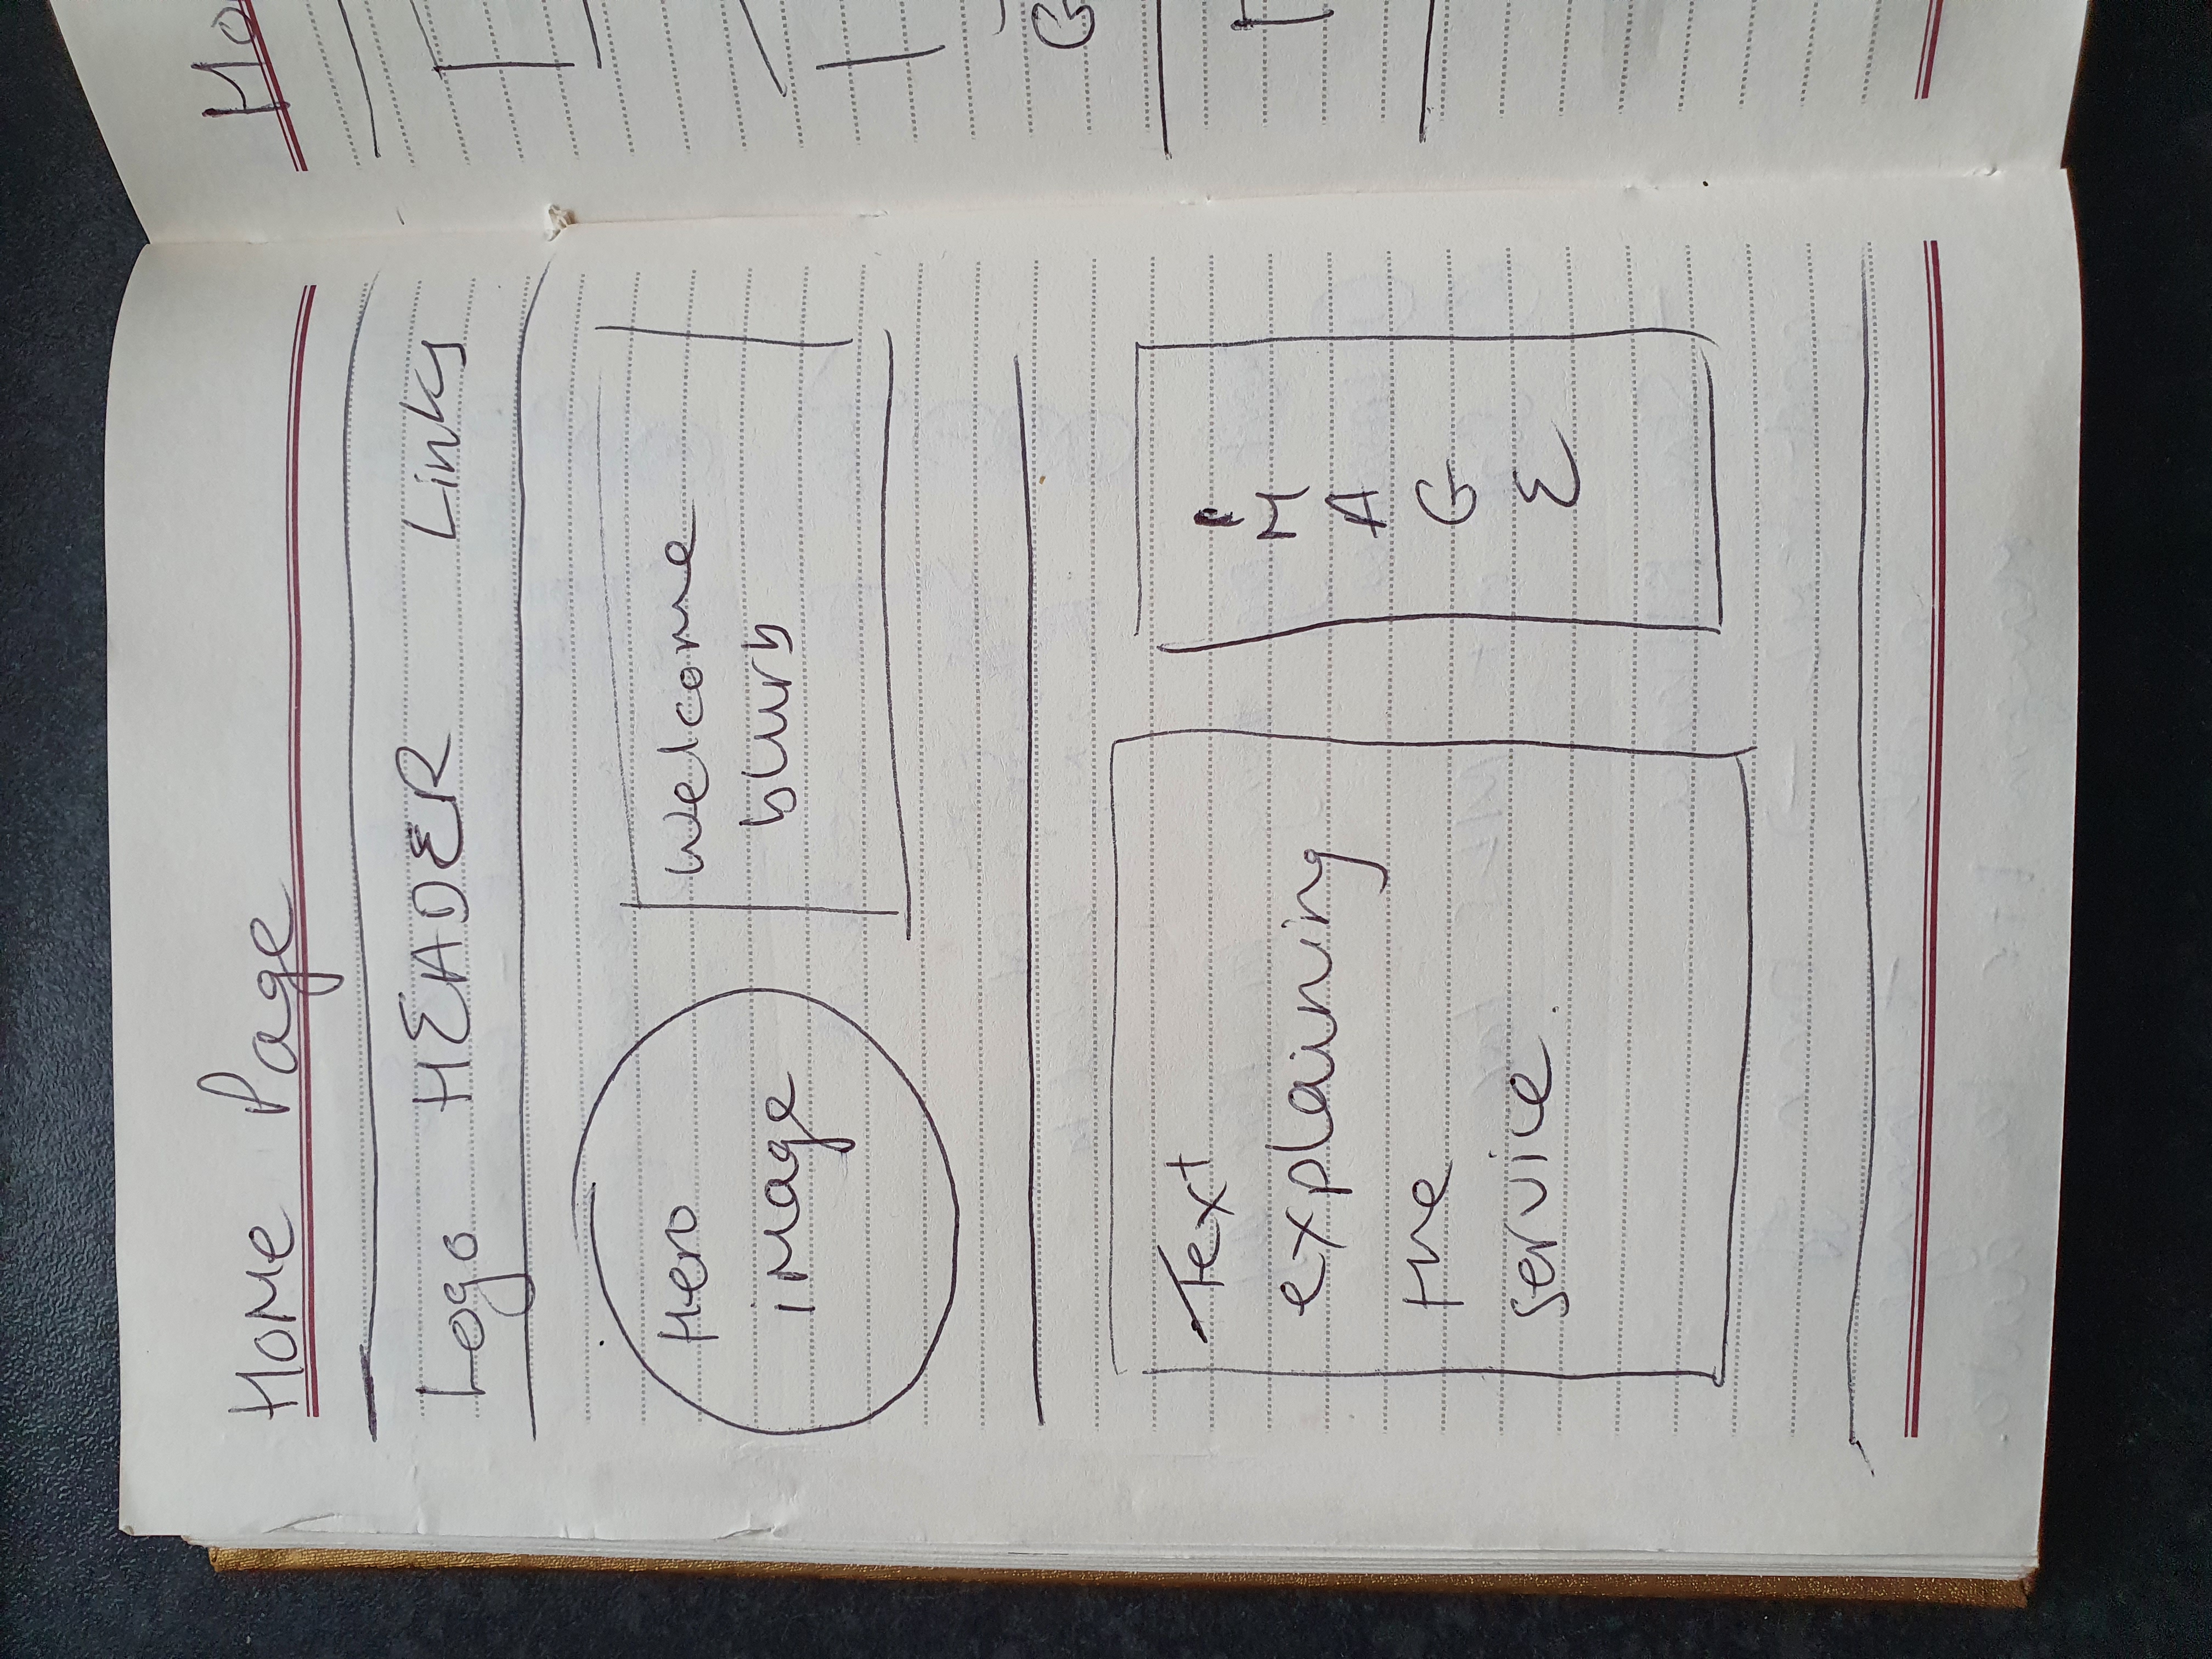 Home Page
Logo HEADER Links
Hero
image
Welcome
blurb
Text
explaining
the
service.
I
M
A
G
E